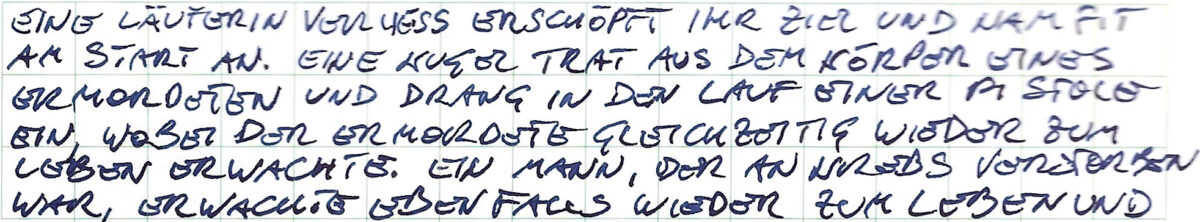 EINE LÄUFERIN VERLIESS ERSCHÖPFT IHR ZIEL UND KAM FIT
AM START AN. EINE KUGEL TRAT AUS DEM KÖRPER EINES
ERMORDETEN UND DRANG IN DEN LAUF EINER PISTOLE
EIN, WOBEI DER ERMORDETE GLEICHZEITIG WIEDER ZUM
LEBEN ERWACHTE. EIN MANN, DER AN KREBS VERSTORBEN
WAR, ERWACHTE EBENFALLS WIEDER ZUM LEBEN UND